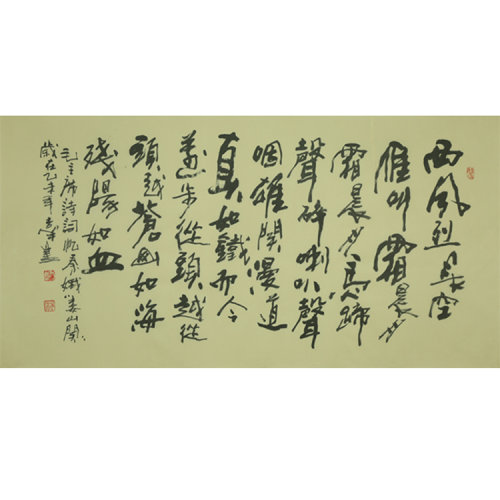 西風烈長空
雁叫霜晨月
霜晨月馬蹄
聲碎喇叭聲
咽雄關漫道
真如鐵而今
邁步從頭越從
頭越蒼山如海
殘陽如血
毛主席詩詞憶秦娥婁山關
歲在乙未年